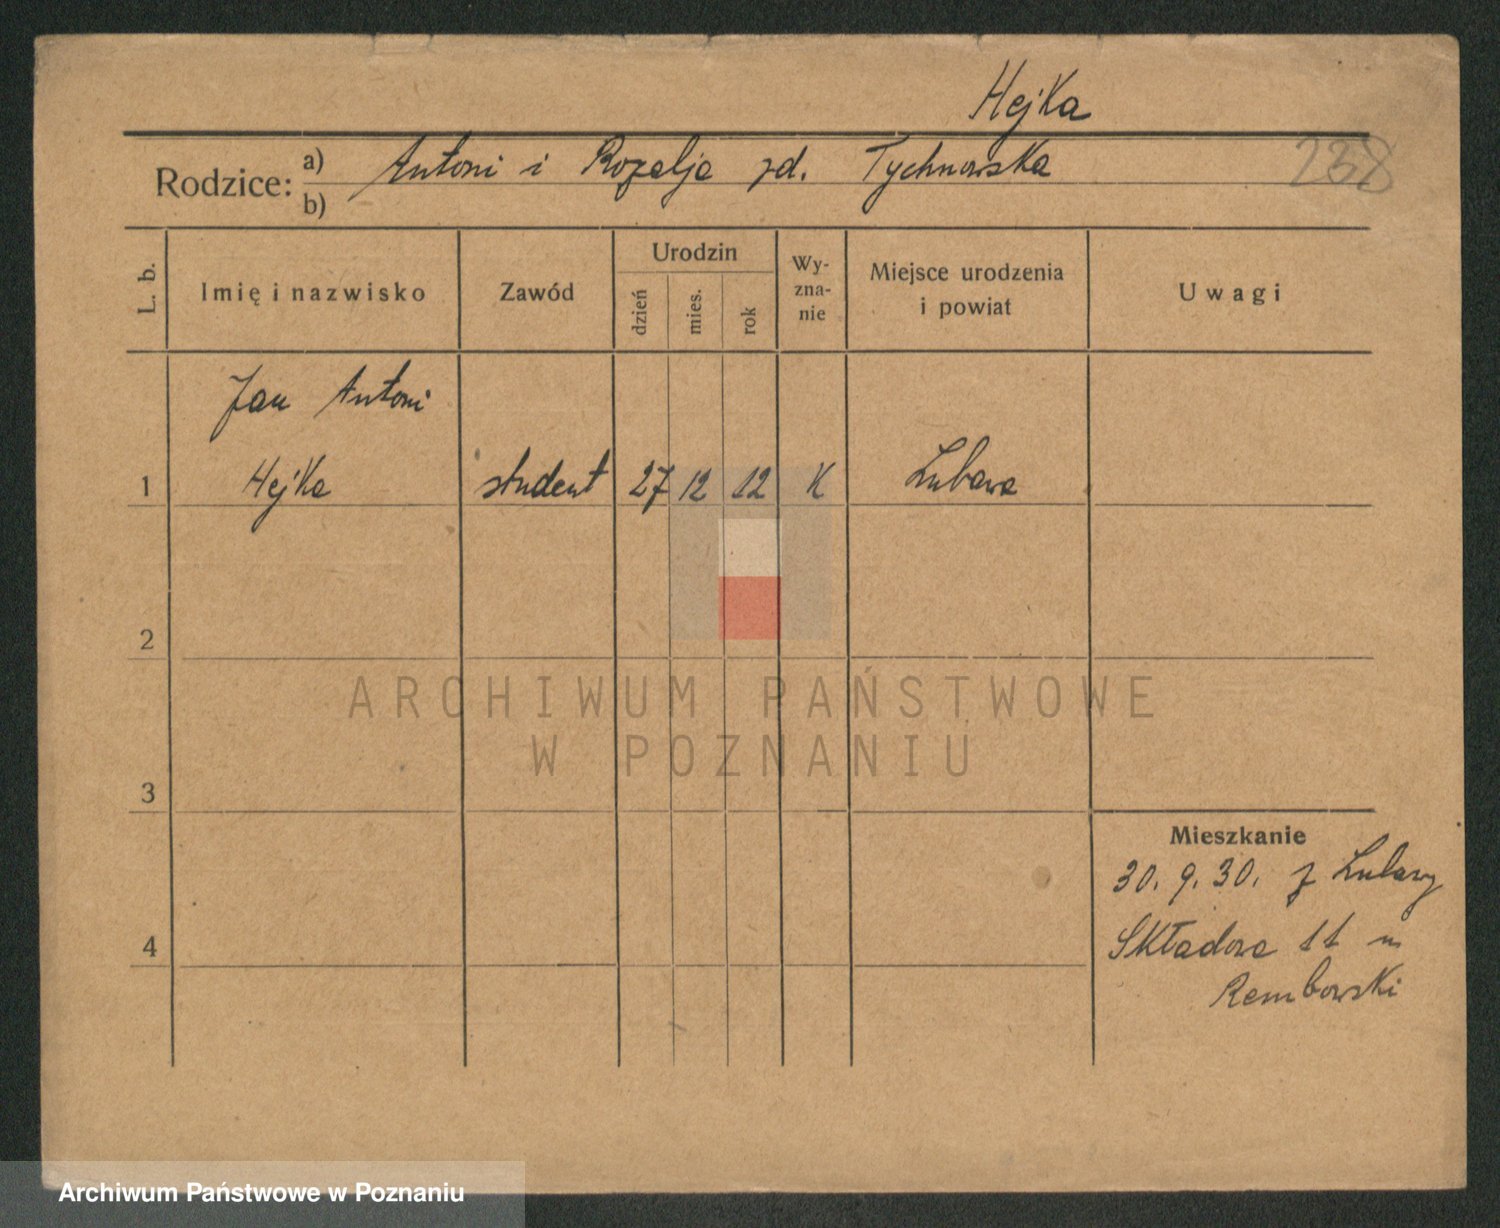 Hejka
Rodzice: a) Antoni i Rozalja zd. Tychnowska
b)
238
L. b. Imię i nazwisko Zawód Urodzin dzień mies. rok Wy-zna-nie Miejsce urodzenia i powiat Uwagi
Jan Antoni
1 Hejka student 27 12 12 K Lubawa
2
3
4
Mieszkanie
30. 9. 30. z Lubawy
Składowa 11 m
Rembowski
ARCHIWUM PAŃSTWOWE
W POZNANIU
Archiwum Państwowe w Poznaniu